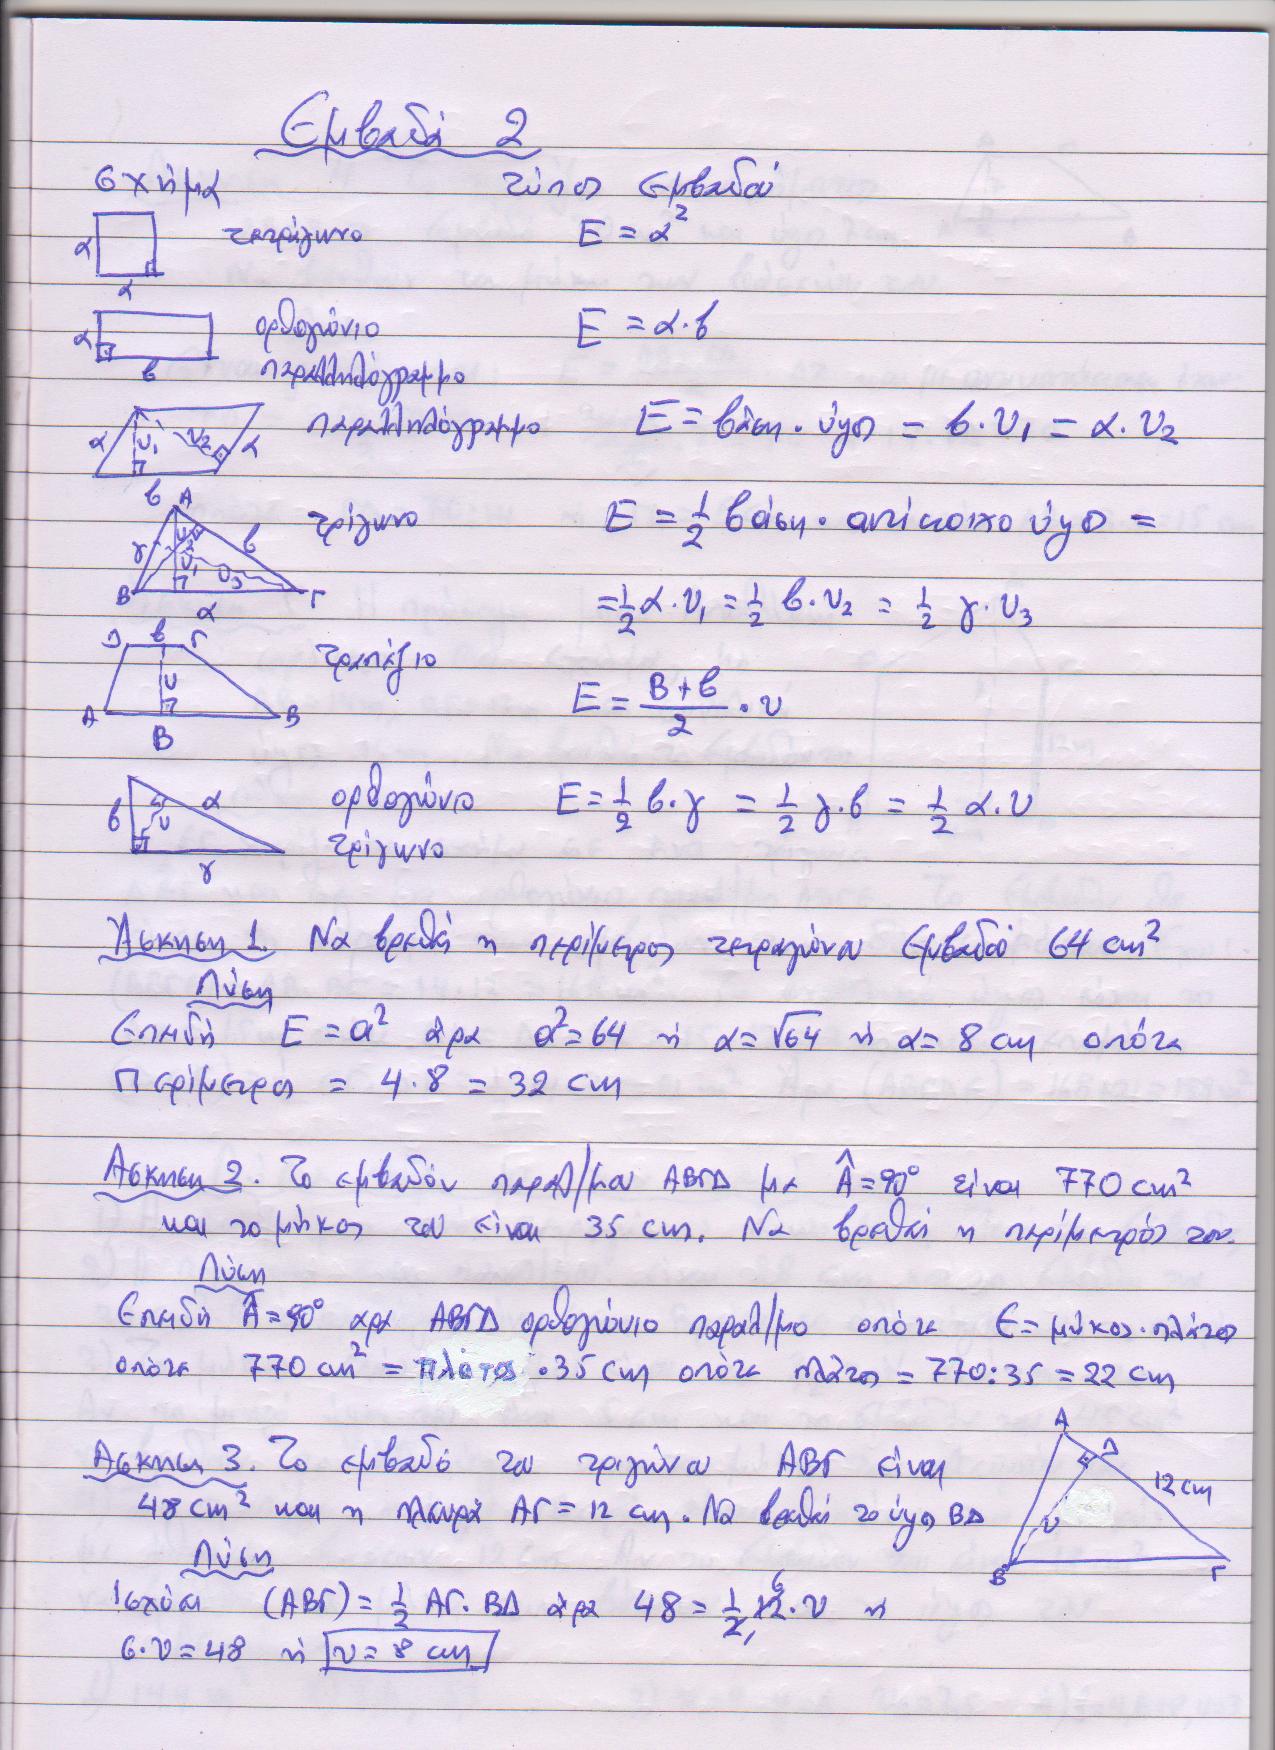 Εμβαδά 2
σχήμα τύπος εμβαδού
α α τετράγωνο E = α²
α β ορθογώνιο E = α·β
παραλληλόγραμμο
α υ₁ υ₂ α β παραλληλόγραμμο E = βάση · ύψος = β·υ₁ = α·υ₂
Α γ υ₂ β υ₁ υ₃ Β α Γ τρίγωνο E = 1/2 βάση · αντίστοιχο ύψος =
= 1/2 α·υ₁ = 1/2 β·υ₂ = 1/2 γ·υ₃
Δ β Γ υ Α Β Β τραπέζιο
E = (Β+β)/2 · υ
β α υ γ ορθογώνιο E = 1/2 β·γ = 1/2 γ·β = 1/2 α·υ
τρίγωνο
Άσκηση 1. Να βρεθεί η περίμετρος τετραγώνου εμβαδού 64 cm²
Λύση
Επειδή E = α² άρα α² = 64 ή α = √64 ή α = 8 cm οπότε
Περίμετρος = 4·8 = 32 cm
Άσκηση 2. Το εμβαδόν παραλ/μου ΑΒΓΔ με Â = 90° είναι 770 cm²
και το μήκος του είναι 35 cm. Να βρεθεί η περίμετρός του.
Λύση
Επειδή Â = 90° άρα ΑΒΓΔ ορθογώνιο παραλ/μο οπότε Ε = μήκος·πλάτος
οπότε 770 cm² = πλάτος · 35 cm οπότε πλάτος = 770:35 = 22 cm
Άσκηση 3. Το εμβαδό του τριγώνου ΑΒΓ είναι
48 cm² και η πλευρά ΑΓ = 12 cm. Να βρεθεί το ύψος ΒΔ
Α Δ 12 cm υ Β Γ
Λύση
Ισχύει (ΑΒΓ) = 1/2 ΑΓ·ΒΔ άρα 48 = 1/2 12·υ ή
6·υ = 48 ή υ = 8 cm